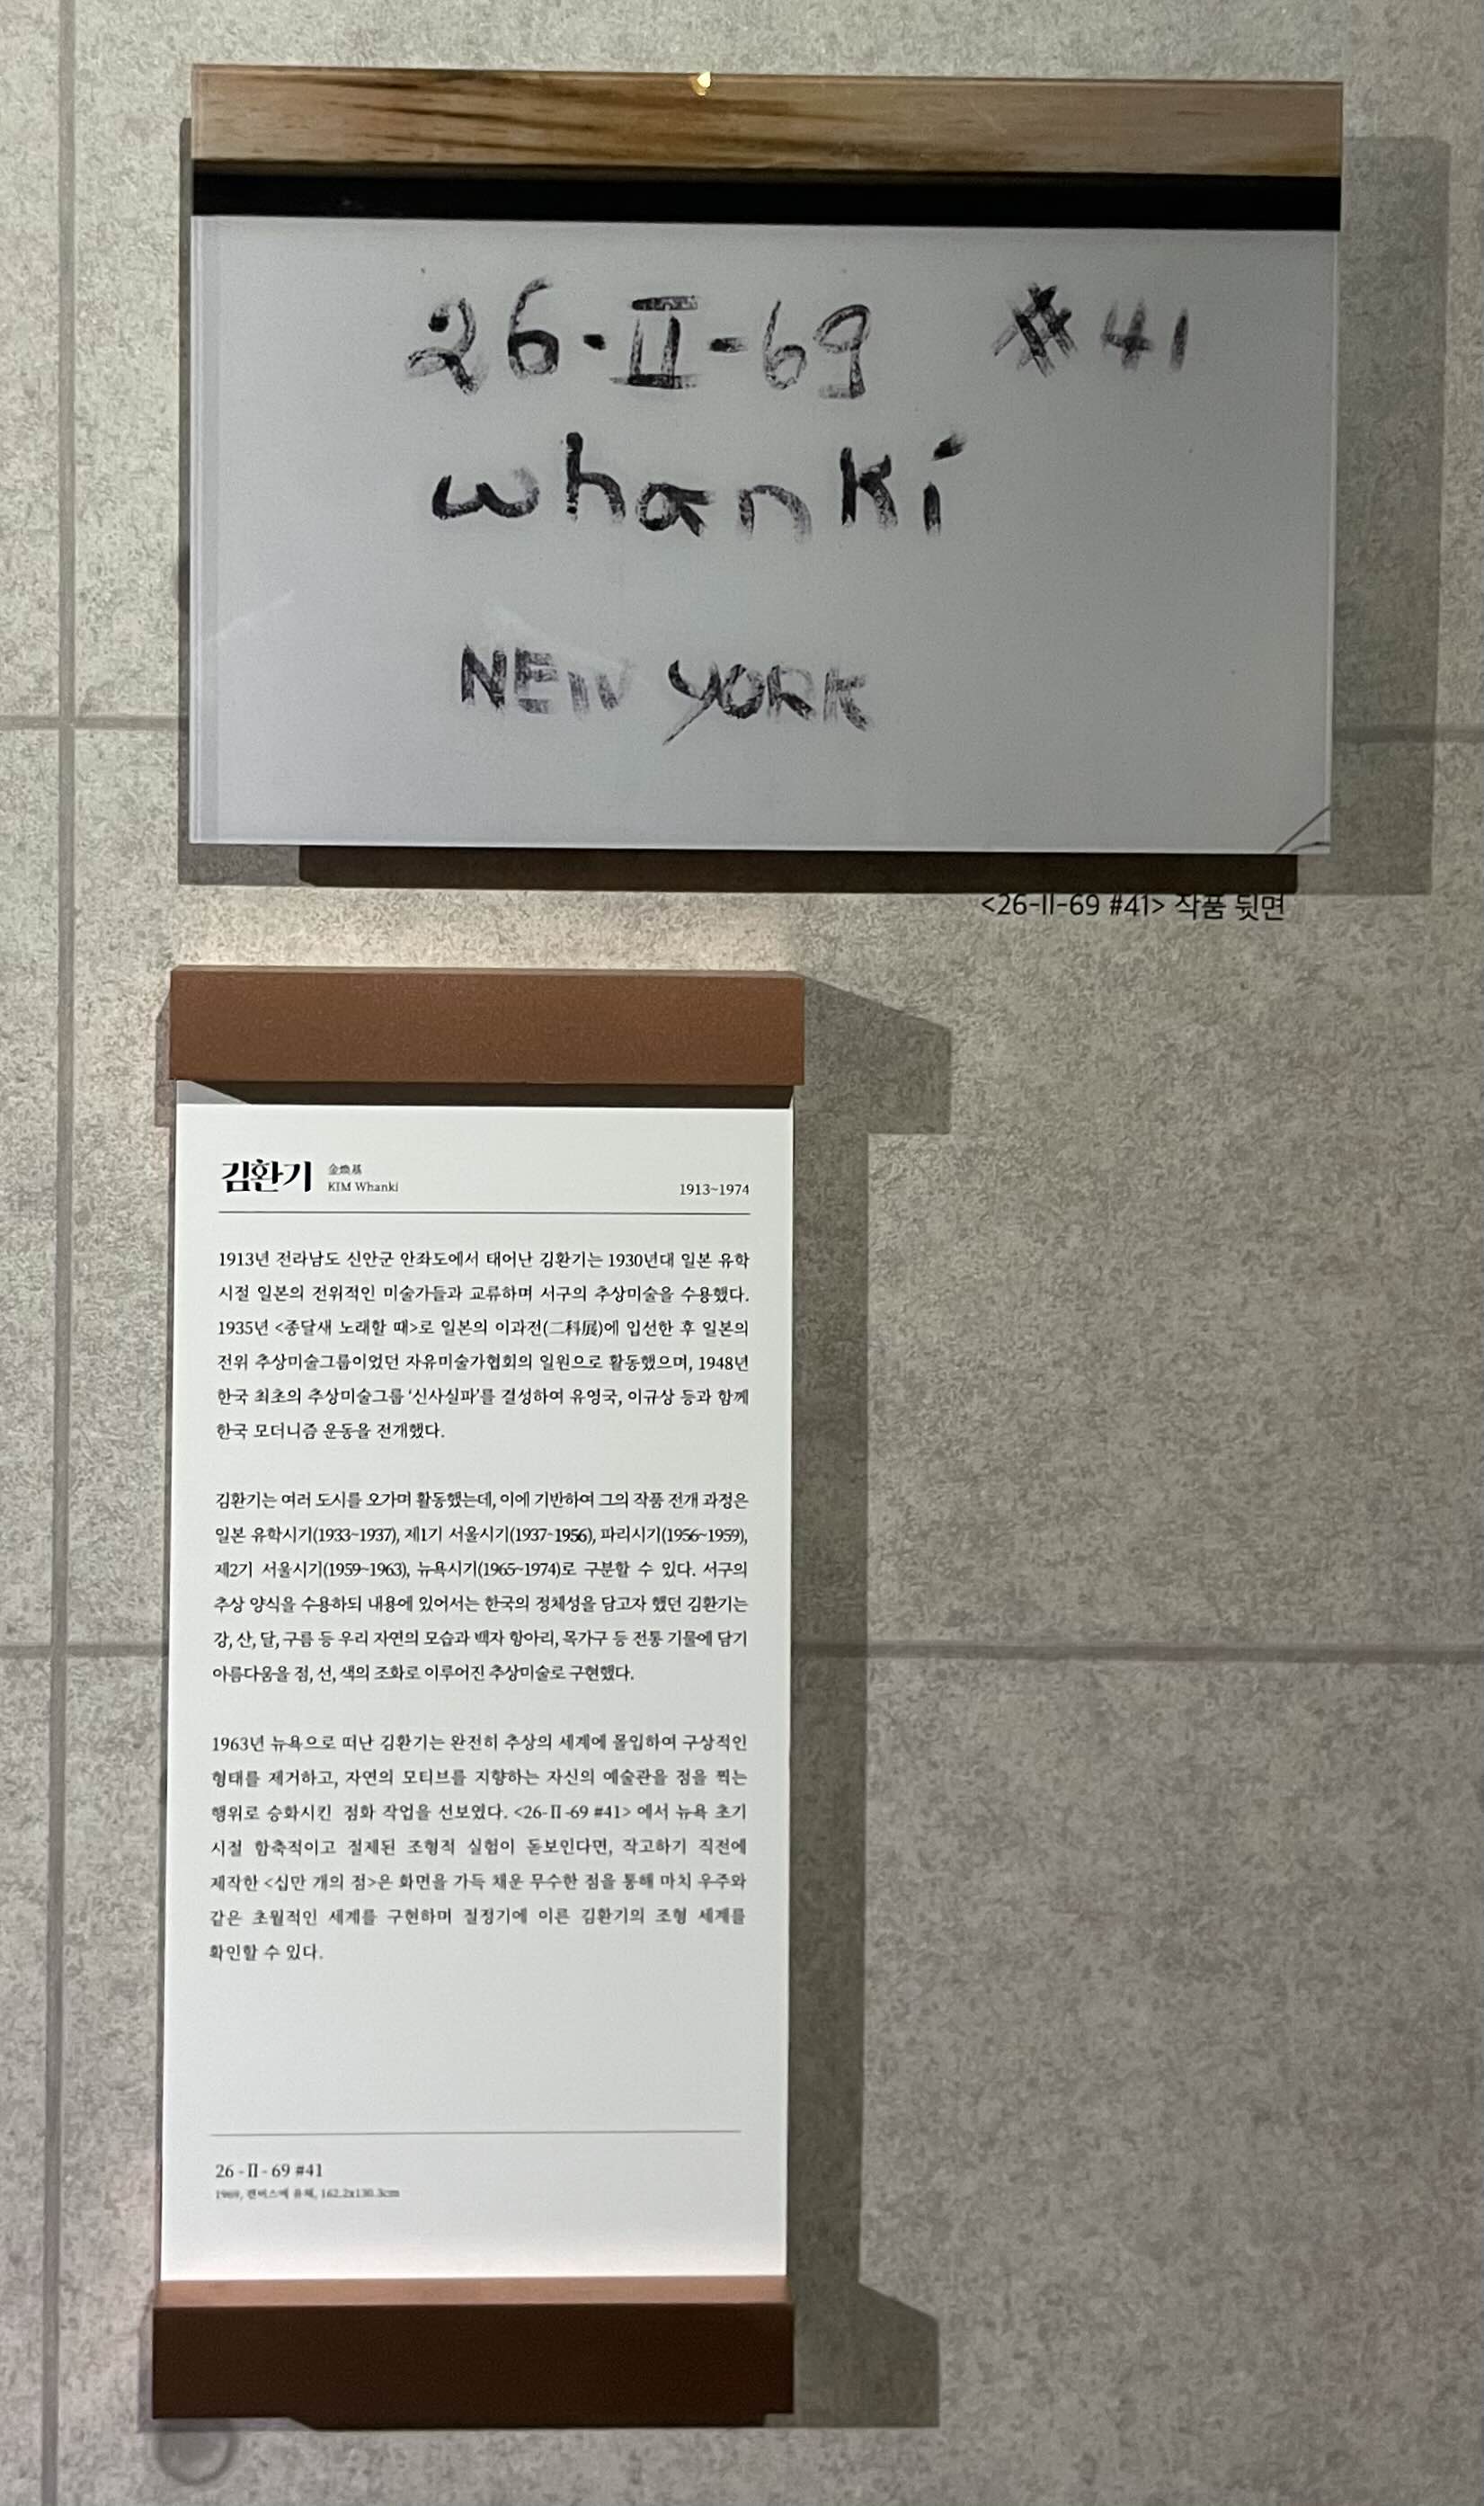 26-II-69 #41
whanki
NEW YORK
<26-II-69 #41> 작품 뒷면
김환기 金煥基
KIM Whanki 1913~1974
1913년 전라남도 신안군 안좌도에서 태어난 김환기는 1930년대 일본 유학
시절 일본의 전위적인 미술가들과 교류하며 서구의 추상미술을 수용했다.
1935년 <종달새 노래할 때>로 일본의 이과전(二科展)에 입선한 후 일본의
전위 추상미술그룹이었던 자유미술가협회의 일원으로 활동했으며, 1948년
한국 최초의 추상미술그룹 ‘신사실파’를 결성하여 유영국, 이규상 등과 함께
한국 모더니즘 운동을 전개했다.
김환기는 여러 도시를 오가며 활동했는데, 이에 기반하여 그의 작품 전개 과정은
일본 유학시기(1933~1937), 제1기 서울시기(1937-1956), 파리시기(1956~1959),
제2기 서울시기(1959~1963), 뉴욕시기(1965~1974)로 구분할 수 있다. 서구의
추상 양식을 수용하되 내용에 있어서는 한국의 정체성을 담고자 했던 김환기는
강, 산, 달, 구름 등 우리 자연의 모습과 백자 항아리, 목가구 등 전통 기물에 담기
아름다움을 점, 선, 색의 조화로 이루어진 추상미술로 구현했다.
1963년 뉴욕으로 떠난 김환기는 완전히 추상의 세계에 몰입하여 구상적인
형태를 제거하고, 자연의 모티브를 지향하는 자신의 예술관을 점을 찍는
행위로 승화시킨 점화 작업을 선보였다. <26-Ⅱ-69 #41> 에서 뉴욕 초기
시절 함축적이고 절제된 조형적 실험이 돋보인다면, 작고하기 직전에
제작한 <십만 개의 점>은 화면을 가득 채운 무수한 점을 통해 마치 우주와
같은 초월적인 세계를 구현하며 절정기에 이른 김환기의 조형 세계를
확인할 수 있다.
26-Ⅱ-69 #41
1969, 캔버스에 유채, 162.2x130.3cm